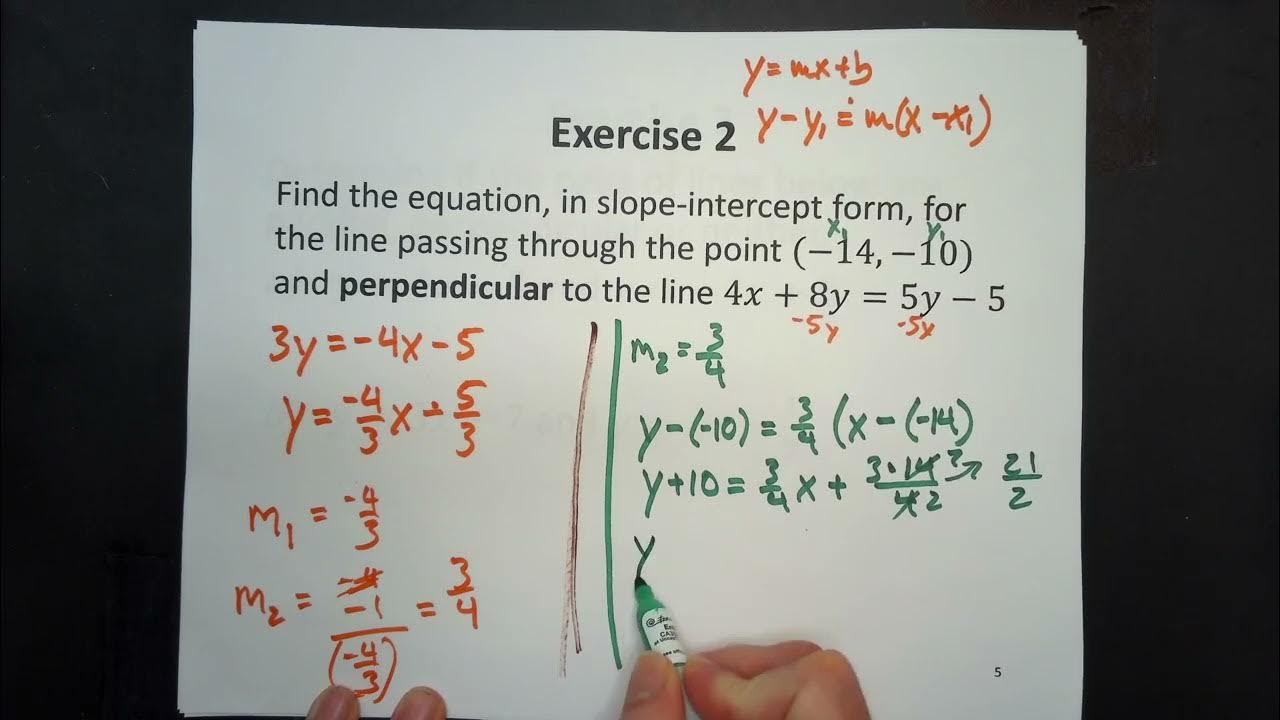 y = mx + b
y - y₁ = m(x - x₁)
Exercise 2
Find the equation, in slope-intercept form, for
x₁ y₁
the line passing through the point (−14, −10)
and perpendicular to the line 4x + 8y = 5y − 5
-5y -5y
3y = -4x - 5
y = -4/3 x - 5/3
m₁ = -4/3
m₂ = -1/(-4/3) = 3/4
m₂ = 3/4
y - (-10) = 3/4 (x - (-14)
y + 10 = 3/4 x + 3·14/4 7 2 → 21/2
y
5